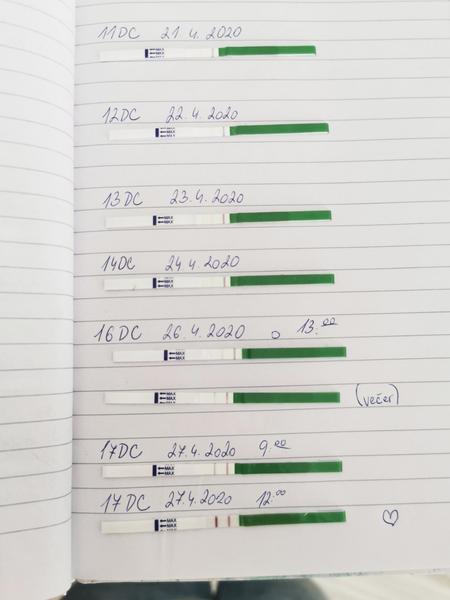 11DC 21.4.2020
MAX
MAX
12DC 22.4.2020
MAX
MAX
13DC 23.4.2020
MAX
MAX
14DC 24.4.2020
MAX
MAX
16DC 26.4.2020 o 13:00
MAX
MAX
MAX
(večer)
17DC 27.4.2020 9:00
MAX
MAX
17DC 27.4.2020 12:00
MAX
MAX
MAX